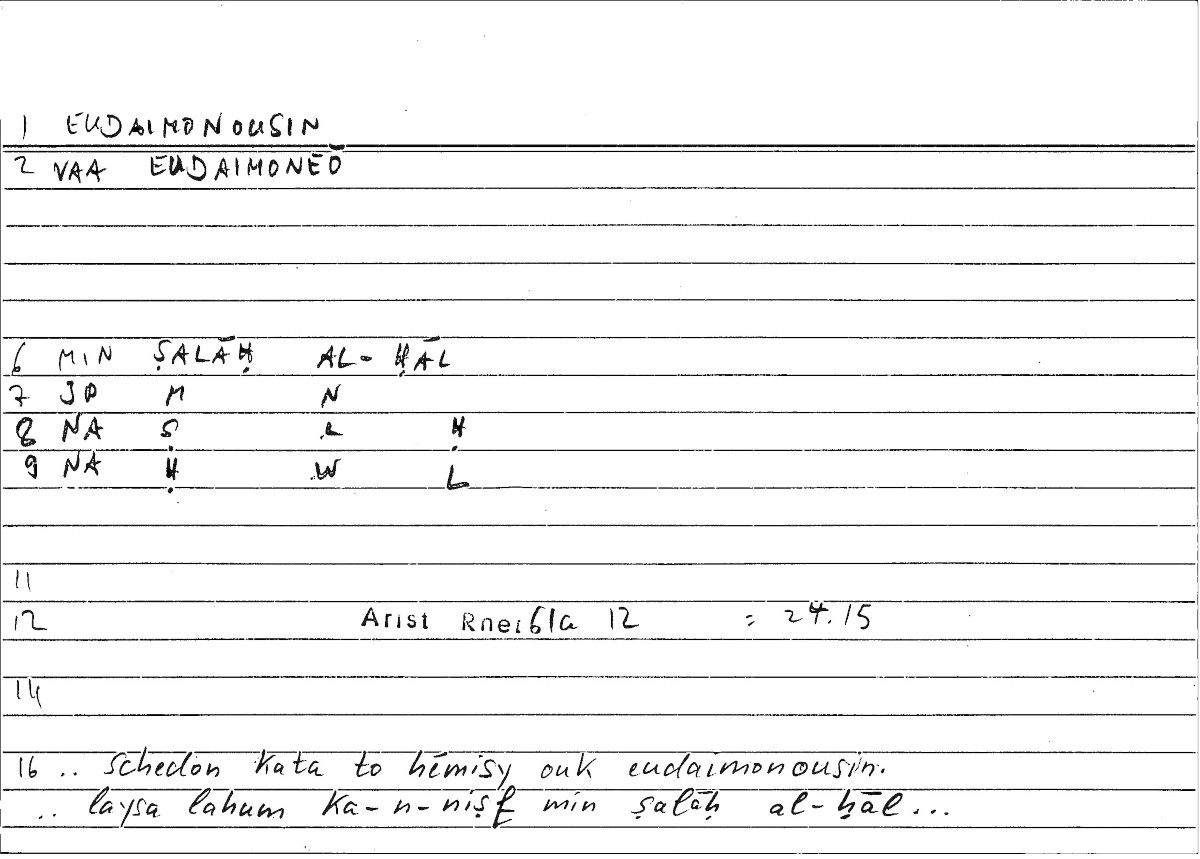 1 EUDAIMONOUSIN
2 VAA EUDAIMONEŌ
6 MIN ṢALĀḤ AL-ḤĀL
7 JP M N
8 NA Ṣ L Ḥ
9 NA Ḥ W L
11
12 Arist Rhei61a 12 = 24.15
14
16 .. schedòn kata to hēmisy ouk eudaimonousin.
.. laysa lahum ka-n-niṣf min ṣalāḥ al-ḥāl...